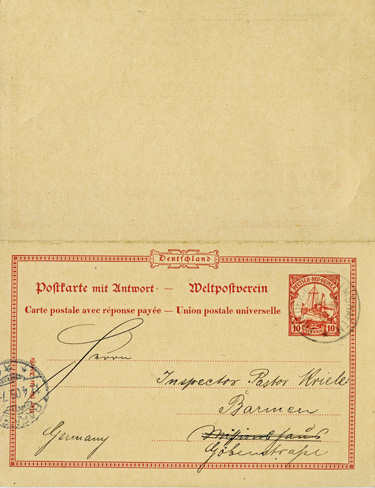 Deutschland
Postkarte mit Antwort — Weltpostverein
Carte postale avec réponse payée — Union postale universelle
DEUTSCH-NEU-GUINEA
10 PFENNIG 10
Herrn
Inspector Pastor Kriele
Barmen
Missionshaus
Göbenstraße
Germany